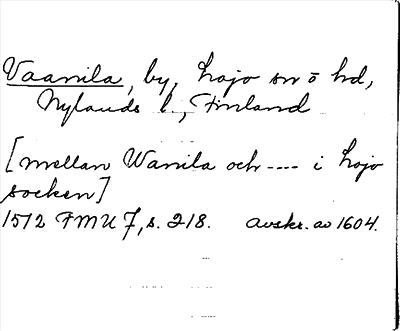 Vaanila, by, Lojo sn o hd,
Nylands l., Finland
[mellan Wanila och ---- i Lojo
socken]
1512 FMU 7, s. 218. Avskr. av 1604.